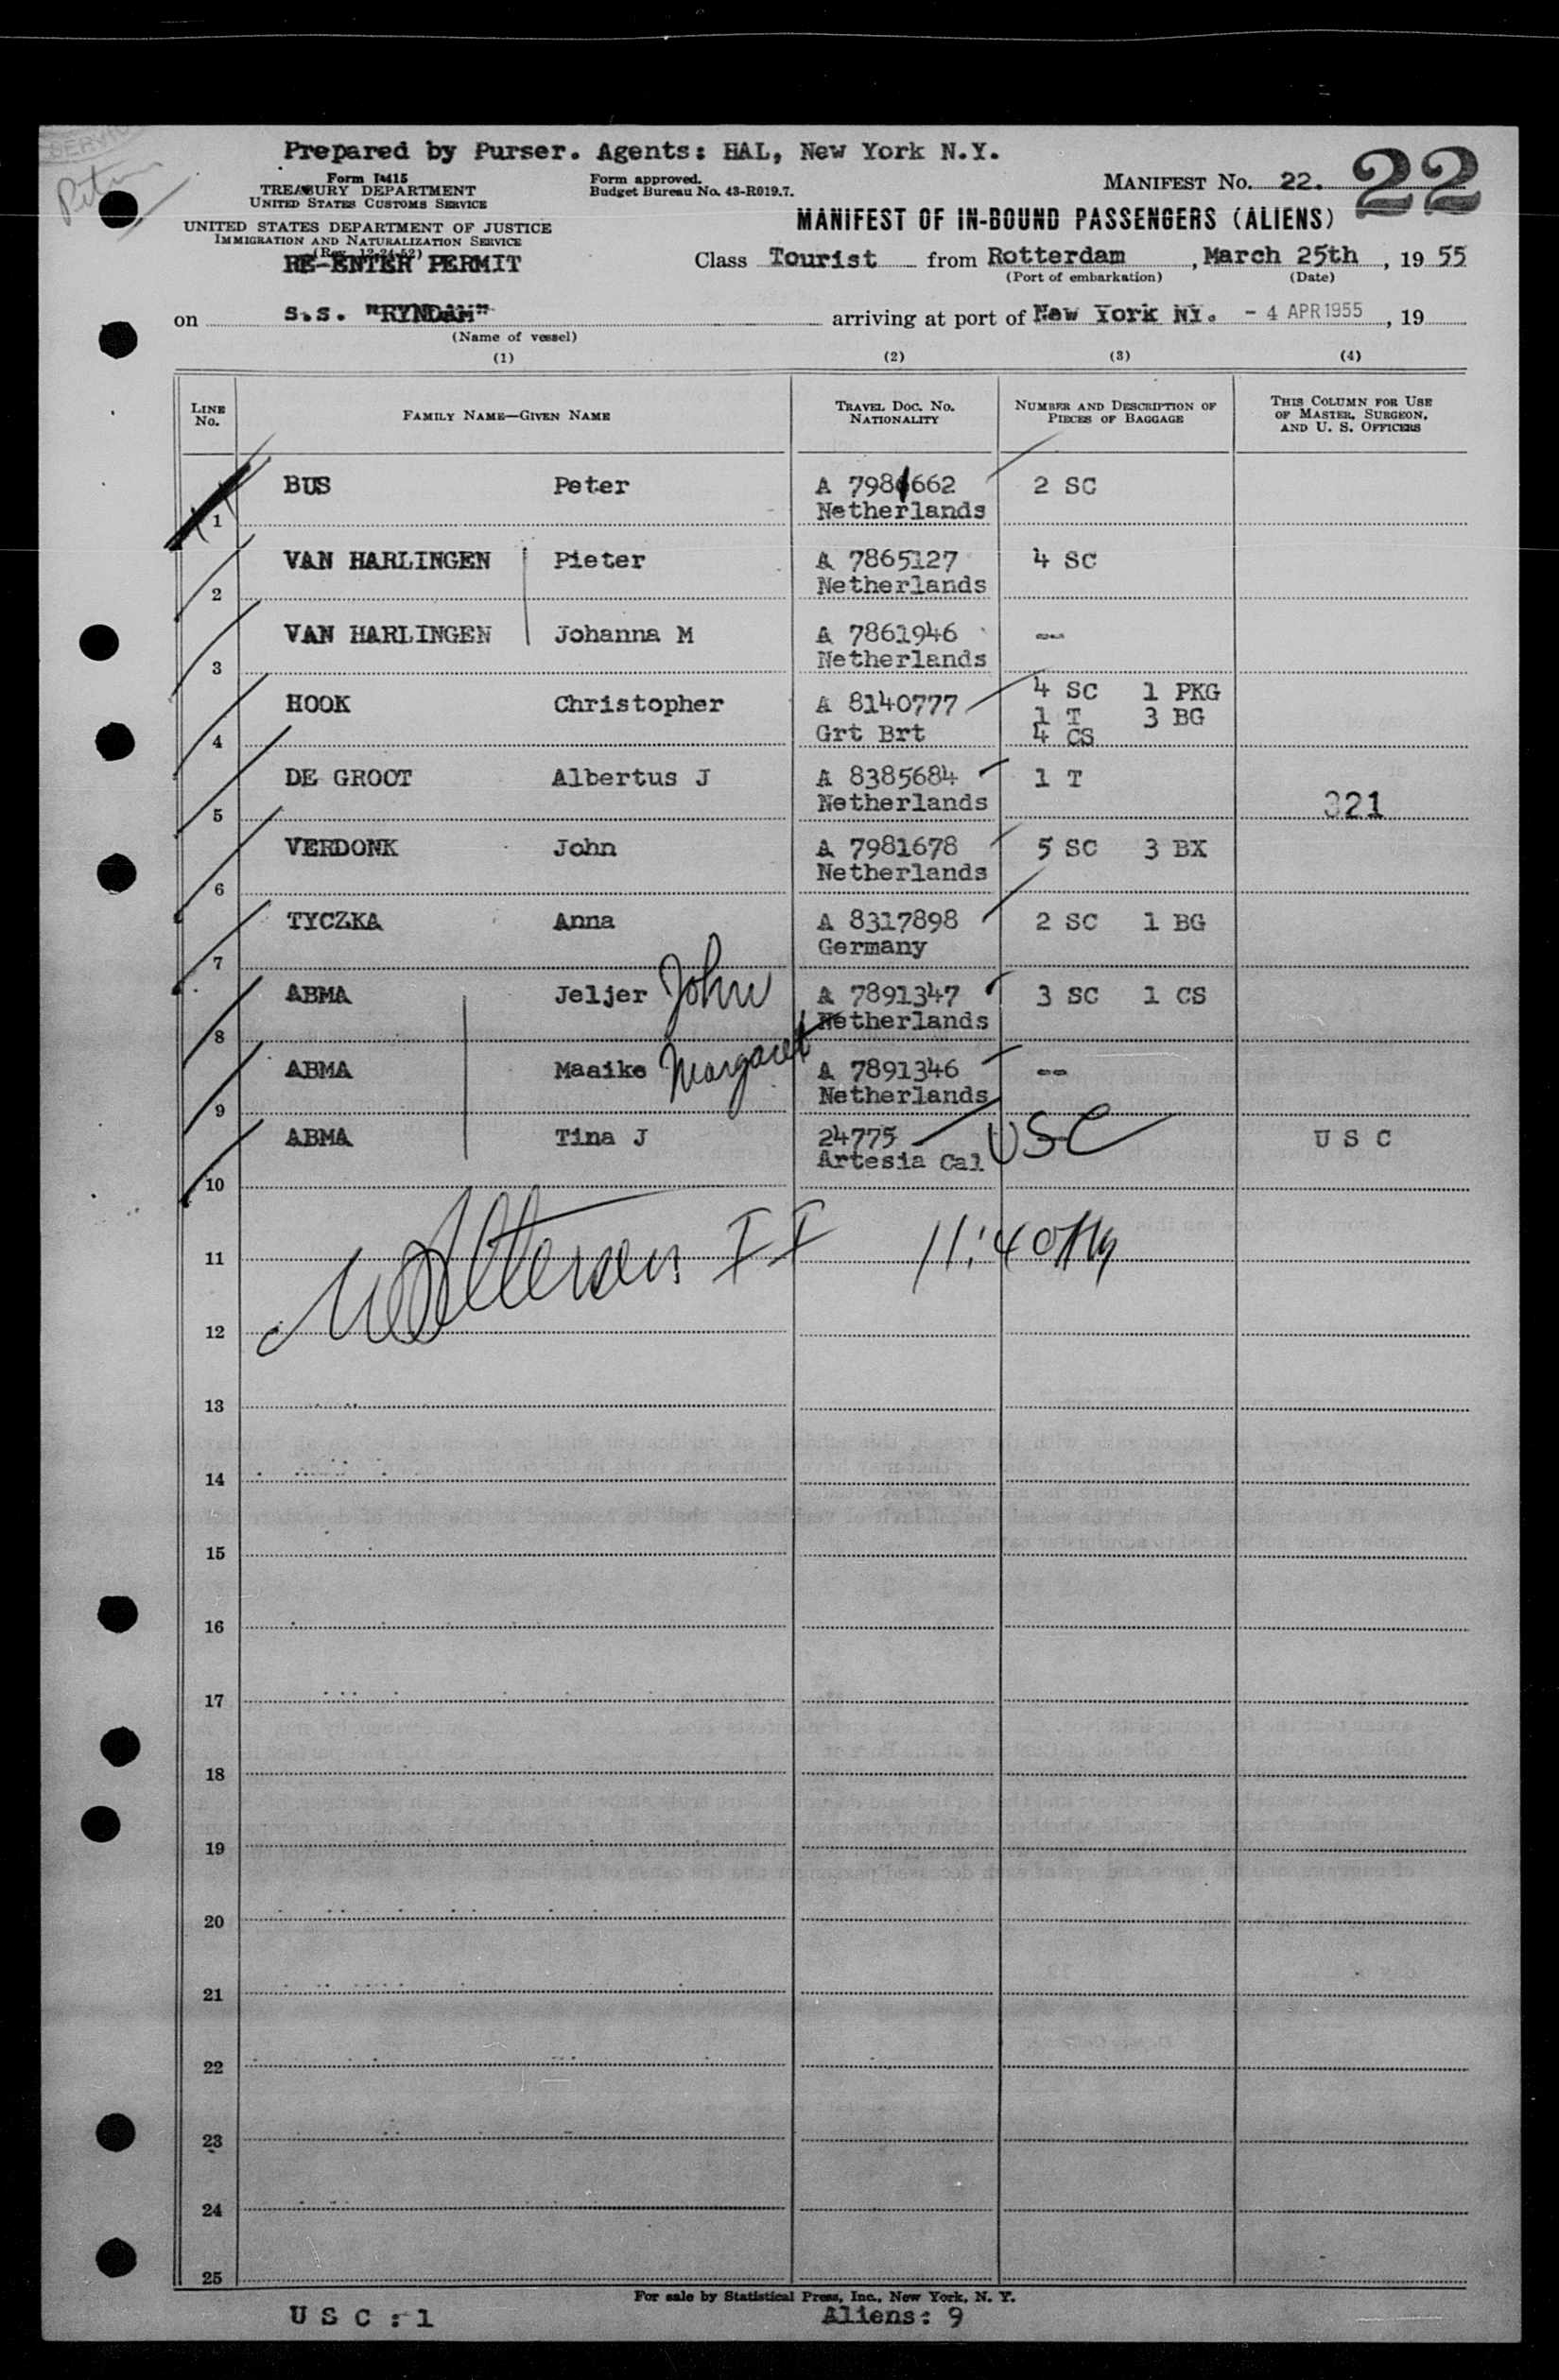 Prepared by Purser. Agents: HAL, New York N.Y.
Form I-415
TREASURY DEPARTMENT
UNITED STATES CUSTOMS SERVICE
Form approved.
Budget Bureau No. 43-R019.7.
MANIFEST No. 22. 22
UNITED STATES DEPARTMENT OF JUSTICE
IMMIGRATION AND NATURALIZATION SERVICE
(Rev. 12-24-52)
RE-ENTER PERMIT
MANIFEST OF IN-BOUND PASSENGERS (ALIENS)
Class Tourist from Rotterdam, March 25th, 19 55
(Port of embarkation) (Date)
on s.s. "RYNDAM" arriving at port of New York NY. - 4 APR 1955, 19
(Name of vessel)
(1) (2) (3) (4)
LINE No. FAMILY NAME—GIVEN NAME TRAVEL DOC. NO. NATIONALITY NUMBER AND DESCRIPTION OF PIECES OF BAGGAGE THIS COLUMN FOR USE OF MASTER, SURGEON, AND U. S. OFFICERS
BUS Peter A 7981662 2 SC
1 Netherlands
VAN HARLINGEN Pieter A 7865127 4 SC
2 Netherlands
VAN HARLINGEN Johanna M A 7861946 --
3 Netherlands
HOOK Christopher A 8140777 4 SC 1 PKG
1 T 3 BG
4 Grt Brt 4 CS
DE GROOT Albertus J A 8385684 1 T
5 Netherlands 321
VERDONK John A 7981678 5 SC 3 BX
6 Netherlands
TYCZKA Anna A 8317898 2 SC 1 BG
7 Germany
ABMA Jeljer John A 7891347 3 SC 1 CS
8 Netherlands
ABMA Maaike Margaret A 7891346 --
9 Netherlands
ABMA Tina J 24775 USC U S C
10 Artesia Cal
11 II 11:40
12
13
14
15
16
17
18
19
20
21
22
23
24
25
For sale by Statistical Press, Inc., New York, N. Y.
U S C : 1 Aliens: 9